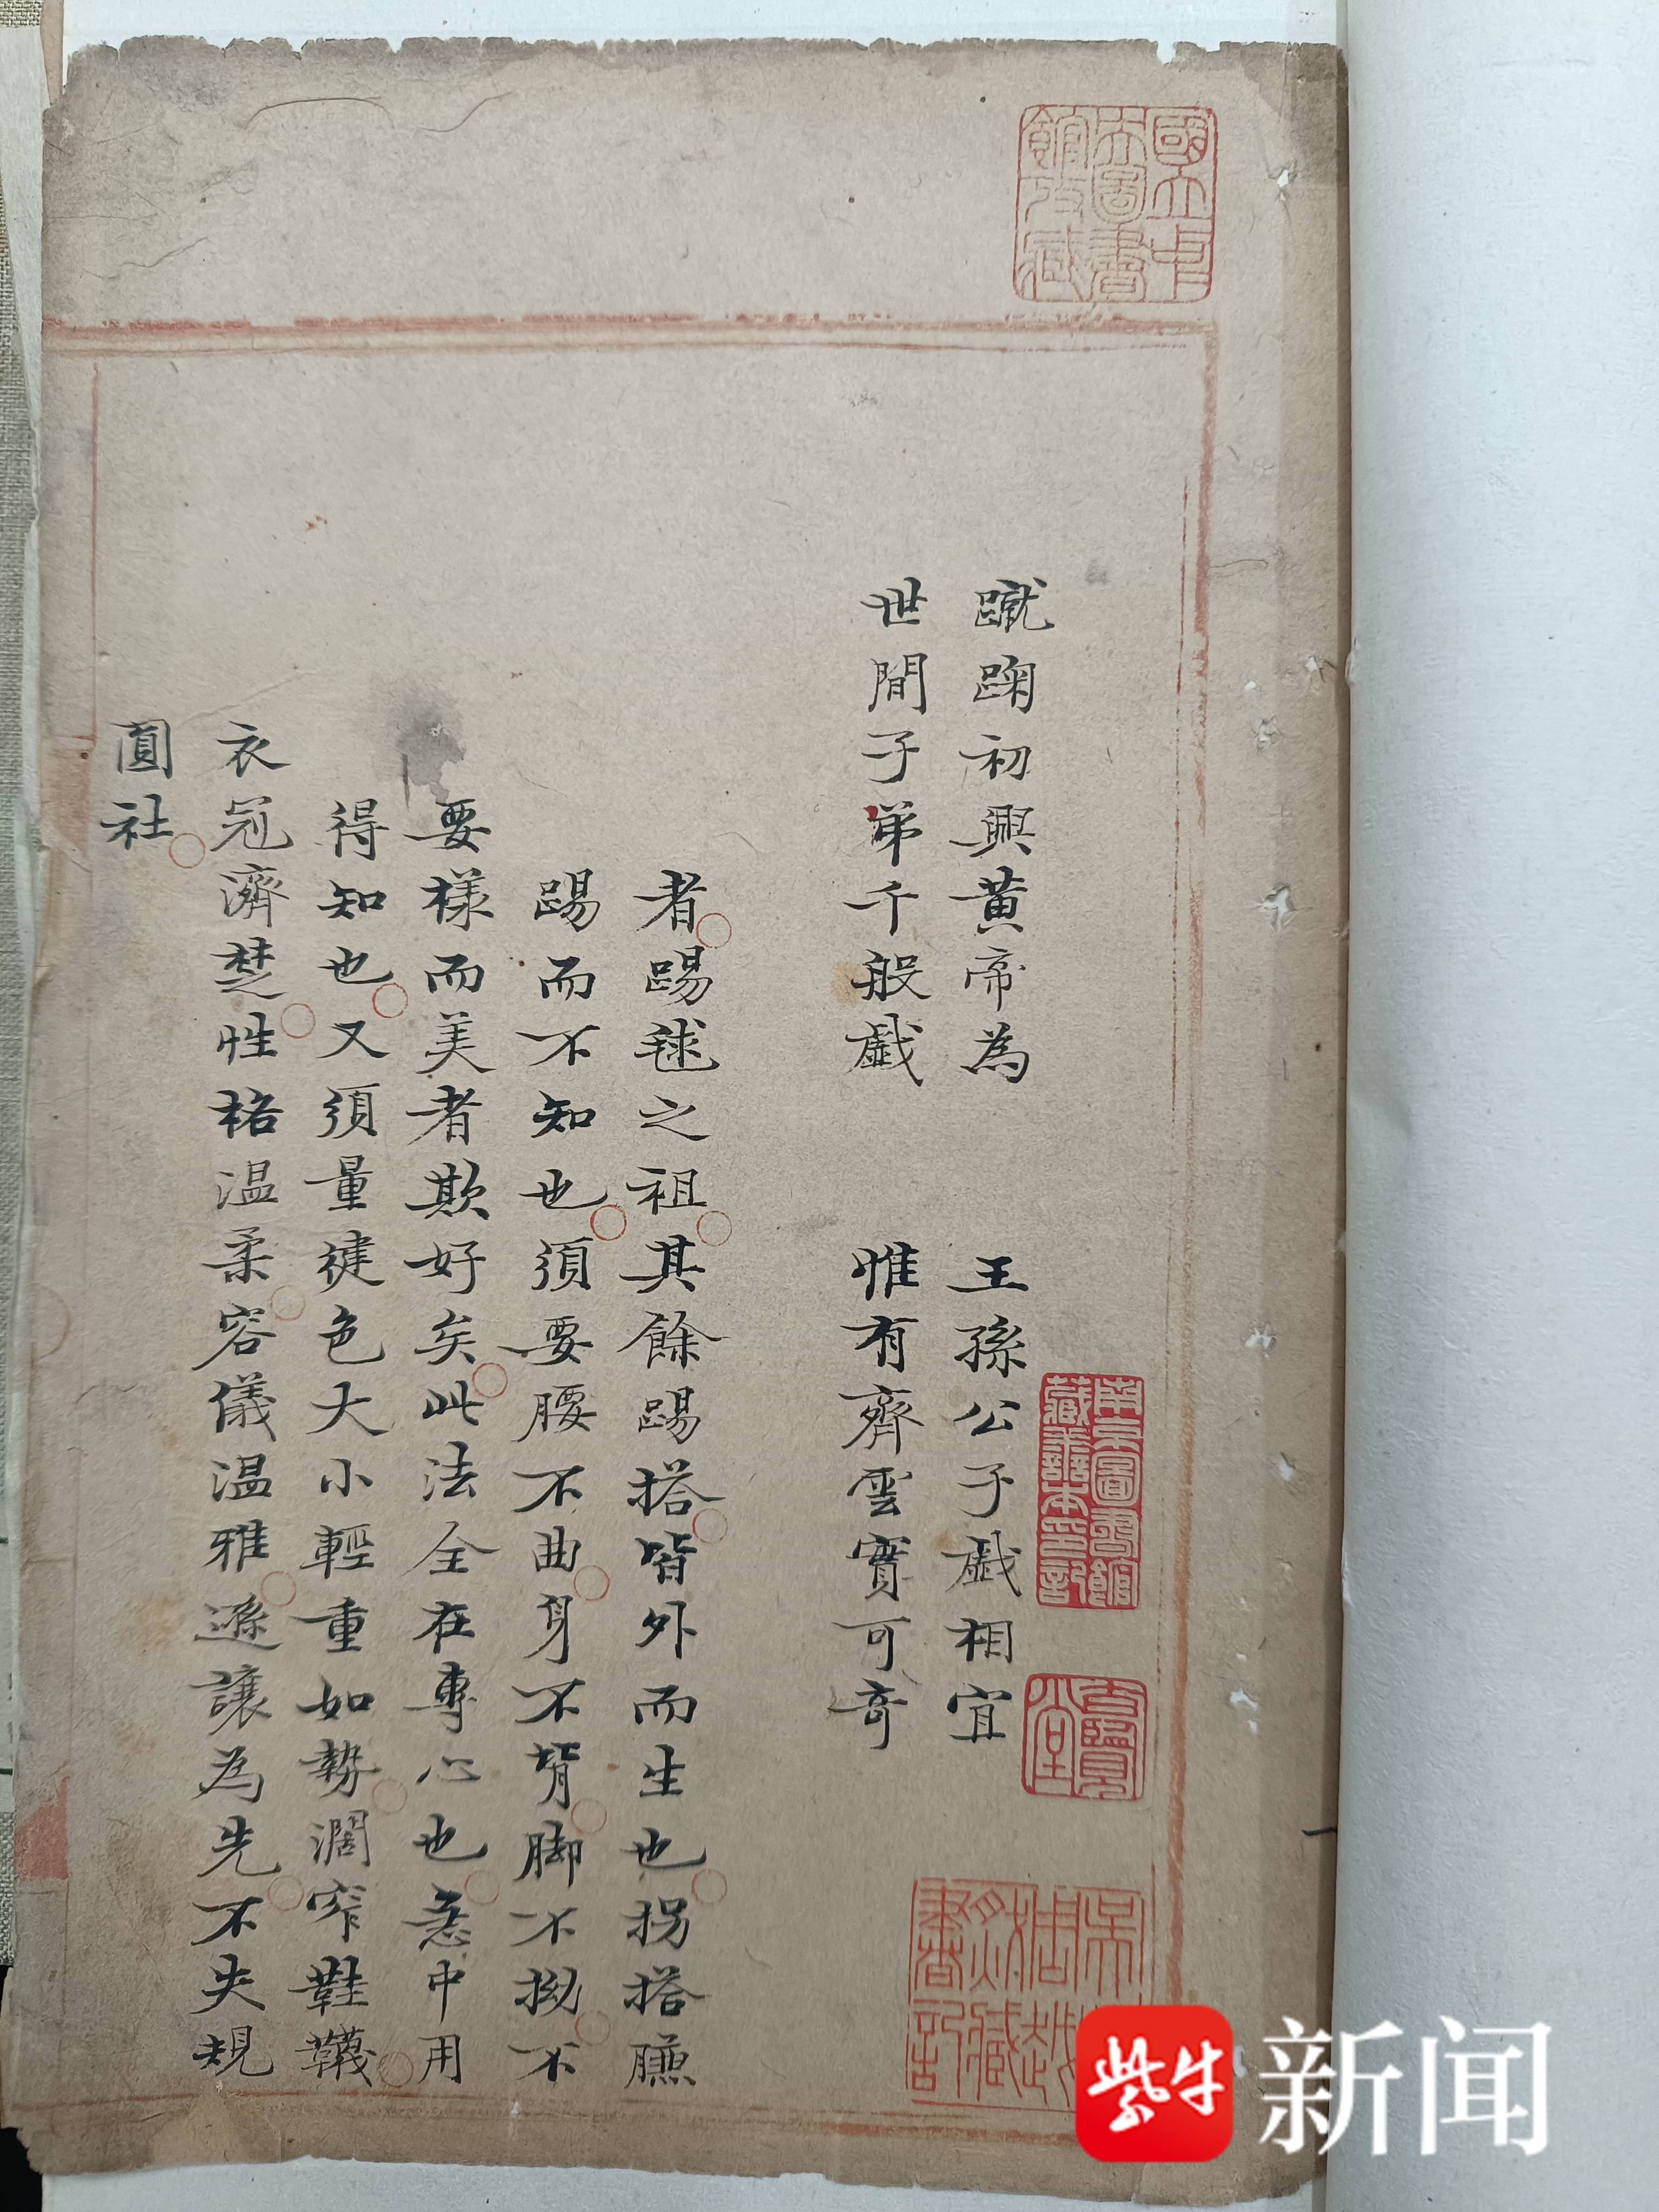 蹴踘初興黃帝為　王孫公子戲相宜
世間子弟千般戲　惟有齊雲實可奇
者踢毬之祖其餘踢搭皆外而生也拐搭臁
踢而不知也須要腰不曲身不背脚不拗不
要樣而美者欺好矣此法全在專心也意中用
得知也又須量健色大小輕重如勢濶窄鞋韈
衣冠濟楚性格温柔容儀温雅遜讓為先不失規
圓社
一
國立中央圖書館攷藏
南京圖書館藏善本印記
八賢堂
錢叔藏書記
紫牛
新闻